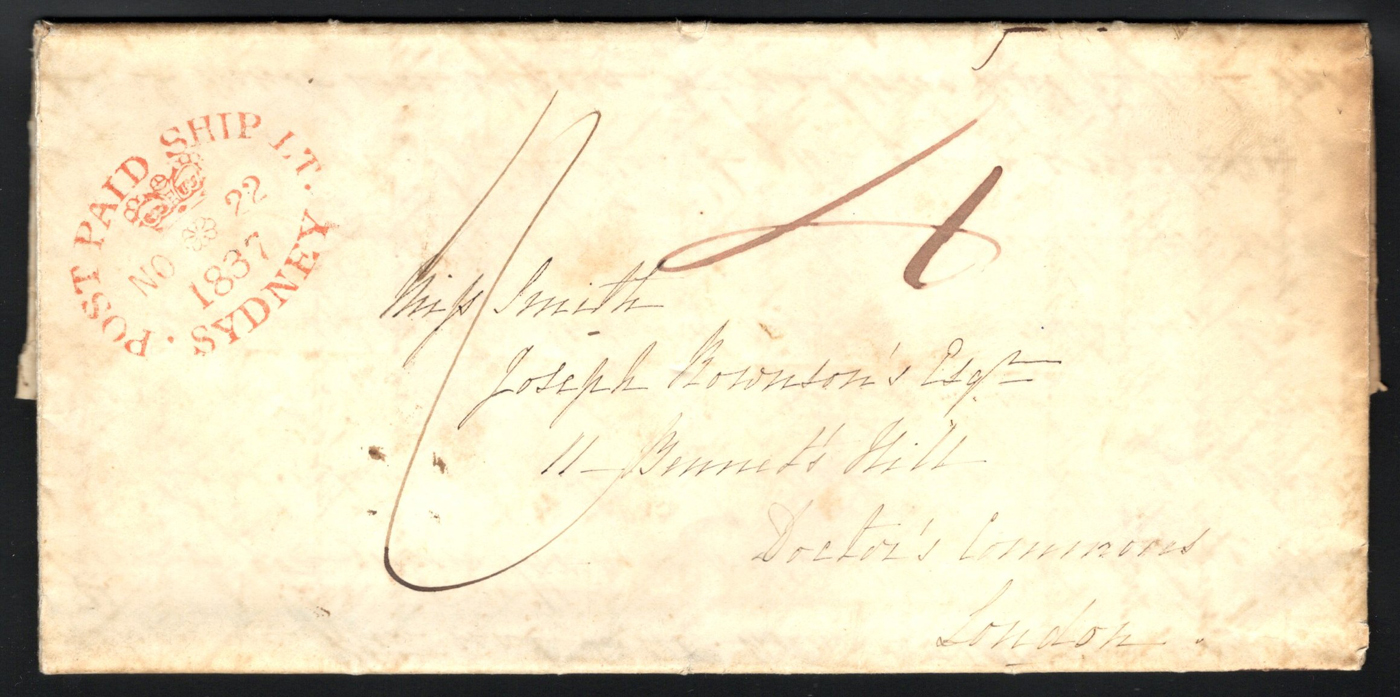 POST PAID SHIP LT.
NO 22
1837
SYDNEY
4
Miss Smith
Joseph Rownson's Esqr
11 - Bennett's Hill
Doctor's Commons
London